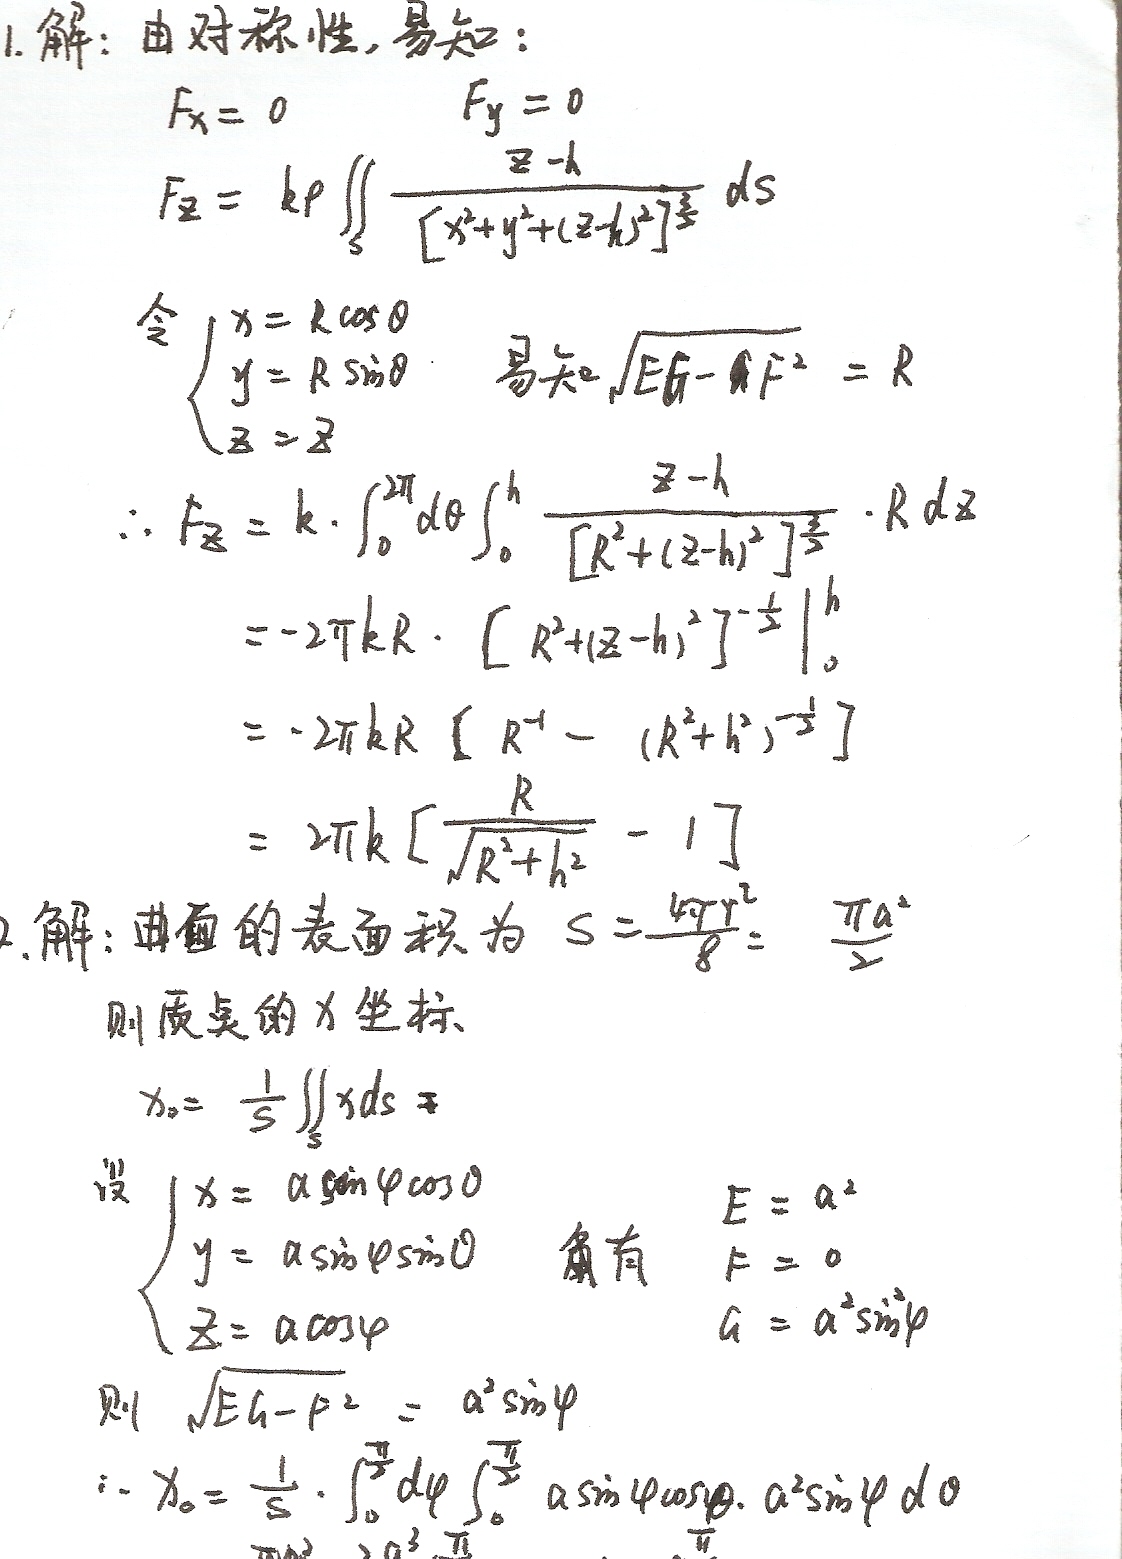 1. 解: 由对称性, 易知:
Fx = 0    Fy = 0
Fz = kρ ∬_S (z-h)/[x²+y²+(z-h)²]^{3/2} ds
令 { x = R cosθ
y = R sinθ    易知 √(EG-F²) = R
z = z
∴ Fz = k · ∫_0^{2π} dθ ∫_0^h (z-h)/[R²+(z-h)²]^{3/2} · R dz
= -2πkR · [R²+(z-h)²]^{-1/2} |_0^h
= -2πkR [R^{-1} - (R²+h²)^{-1/2}]
= 2πk [R/√(R²+h²) - 1]
2. 解: 曲面的表面积为 S = 4πr²/8 = πa²/2
则质点的 x 坐标
x₀ = 1/S ∬_S x ds =
设 { x = a sinφ cosθ    E = a²
y = a sinφ sinθ    有    F = 0
z = a cosφ    G = a² sin²φ
则 √(EG-F²) = a² sinφ
∴ x₀ = 1/S · ∫_0^{π/2} dφ ∫_0^{π/2} a sinφ cosθ · a² sinφ dθ